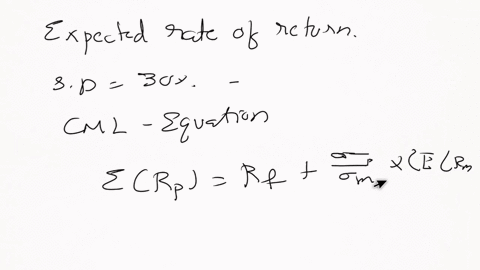 Expected rate of return.
S.D = 30%. -
CML - Equation
E(Rp) = Rf + σ/σm × (E(Rm